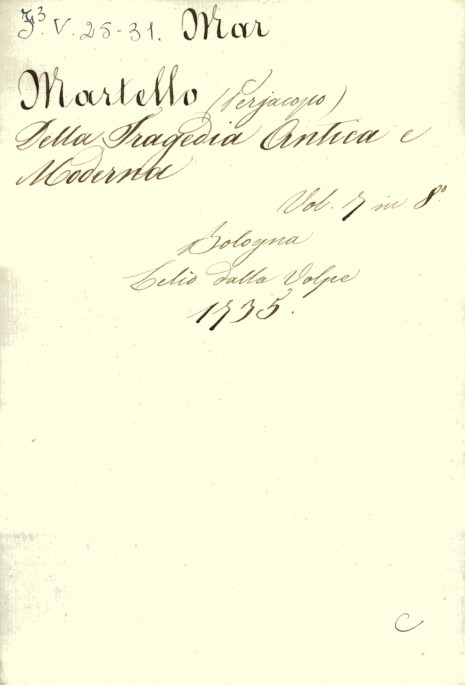 J³. V. 25-31. Mar
Martello (Perjacopo)
Della Tragedia Antica e
Moderna
Vol. 7 in 8°.
Bologna
Lelio dalla Volpe
1735.
C